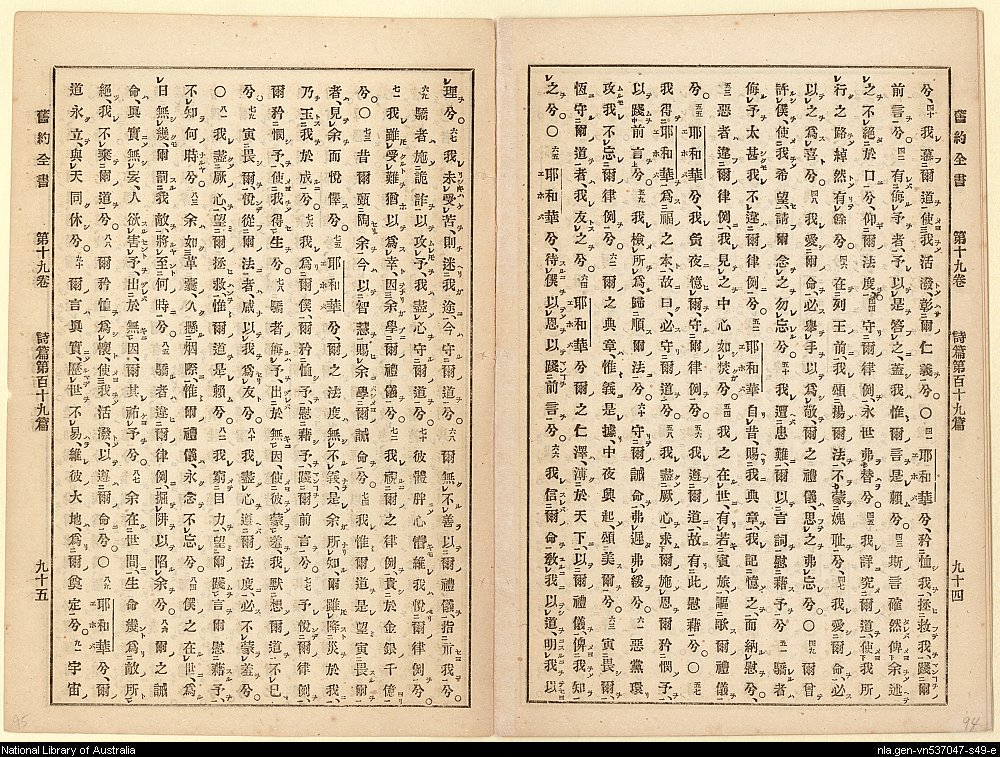 舊約全書 第十九卷 詩篇第百十九篇 九十四
兮、四十我慕爾道使我活潑彰爾仁義兮○四一耶和華兮、矜恤我、拯救我、踐爾
前言兮。四二有侮予者、予以是答之、蓋我惟爾言是賴兮。四三斯言確然俾余述
之不絕於口兮、仰爾法度。四四守爾律例、永世弗替兮。四五我詳究爾道、使我所
行之路綽然有餘兮。四六在列王前、我頌揚爾法、不蒙媿耻兮。四七我愛爾命、必
以之爲喜兮。四八我愛爾命、必擧手以爲敬、爾之禮儀、思之弗忘兮。○四九爾曾
許僕、使我希望、請爾念之勿忘兮。五十我遭患難、爾以言詞慰藉予兮。五一驕者
侮予太甚、我不違爾律例兮。五二耶和華自昔賜我典章、我記憶之、而納慰兮。
五三惡者違爾律例、我見之中心如焚兮。五四我之在世、有若賓旅、謳歌爾禮儀
兮。五五耶和華兮、我夤夜憶爾、守爾律例兮。五六我遵爾道、故有此慰藉兮。○五七
我得耶和華爲福之本、故曰、必守爾道兮。五八我盡厥心、求爾施恩、爾矜憫予、
以踐前言兮。五九我檢所爲、歸順爾法兮。六十守爾誡命、弗遲弗緩兮。六一惡黨環
攻我、不忘爾律例兮。六二爾之典章、惟義是據、中夜興起、頌美爾兮。六三寅畏爾、
恆守爾道者、我友之兮。六四耶和華兮爾之仁澤、溥於天下、以爾禮儀、俾我知
之兮。○六五耶和華兮、待僕以恩、以踐前言兮。六六我信爾命、敎我以道、明我以
94
理兮。六七我未受苦、則迷我途、今守爾道兮。六八爾無不善、以爾禮儀、指示我兮。
六九驕者施詭譎以攻予、我盡心守爾道兮。七十彼體胖心懵、維我悅爾律例兮。
七一我雖受難、猶以爲幸、因余學爾禮儀兮。七二我視爾之律例、貴於金銀千億
兮。○七三昔爾甄陶余、今以智慧賜余、學爾誡命兮。七四我惟爾道是望、寅畏爾
者、見余而悅懌兮。七五耶和華兮、爾之法度、無不義、是余所知、爾雖降災於我、
乃玉我於成兮。七六我爲爾僕、爾矜恤予、慰藉予、踐爾前言兮。七七予悅爾律例
爾矜憫予、使我得生兮。七八驕者侮予、出於無因、使彼蒙羞、我默想爾道不已、
兮。七九寅畏爾、悅從爾法者、咸以我爲友兮。八十我盡心遵爾法度、必不蒙羞兮。
○八一我盡厥心、望爾拯救、惟爾道是賴兮。八二我窮目力、望爾踐言、爾慰藉予、
不知何時兮。八三余如革囊、久懸烟際、惟爾禮儀、永念不忘兮。八四僕之在世、爲
日無幾、爾罰我敵、將至何時兮。八五驕者違爾律例、掘阱以陷余兮。八六爾之誡
命、眞實無妄、人欲害予、出於無因、爾其祐予兮。八七余在世間、生命幾爲敵所
絕、我不棄爾道兮。八八爾矜恤爲懷、使我活潑、以遵爾命兮。○八九耶和華兮、爾
道永立、與天同休兮。九十爾言眞實、歷世不易、維彼大地、爲爾奠定兮。九一宇宙
舊約全書 第十九卷 詩篇第百十九篇 九十五
95
National Library of Australia
nla.gen-vn537047-s49-e